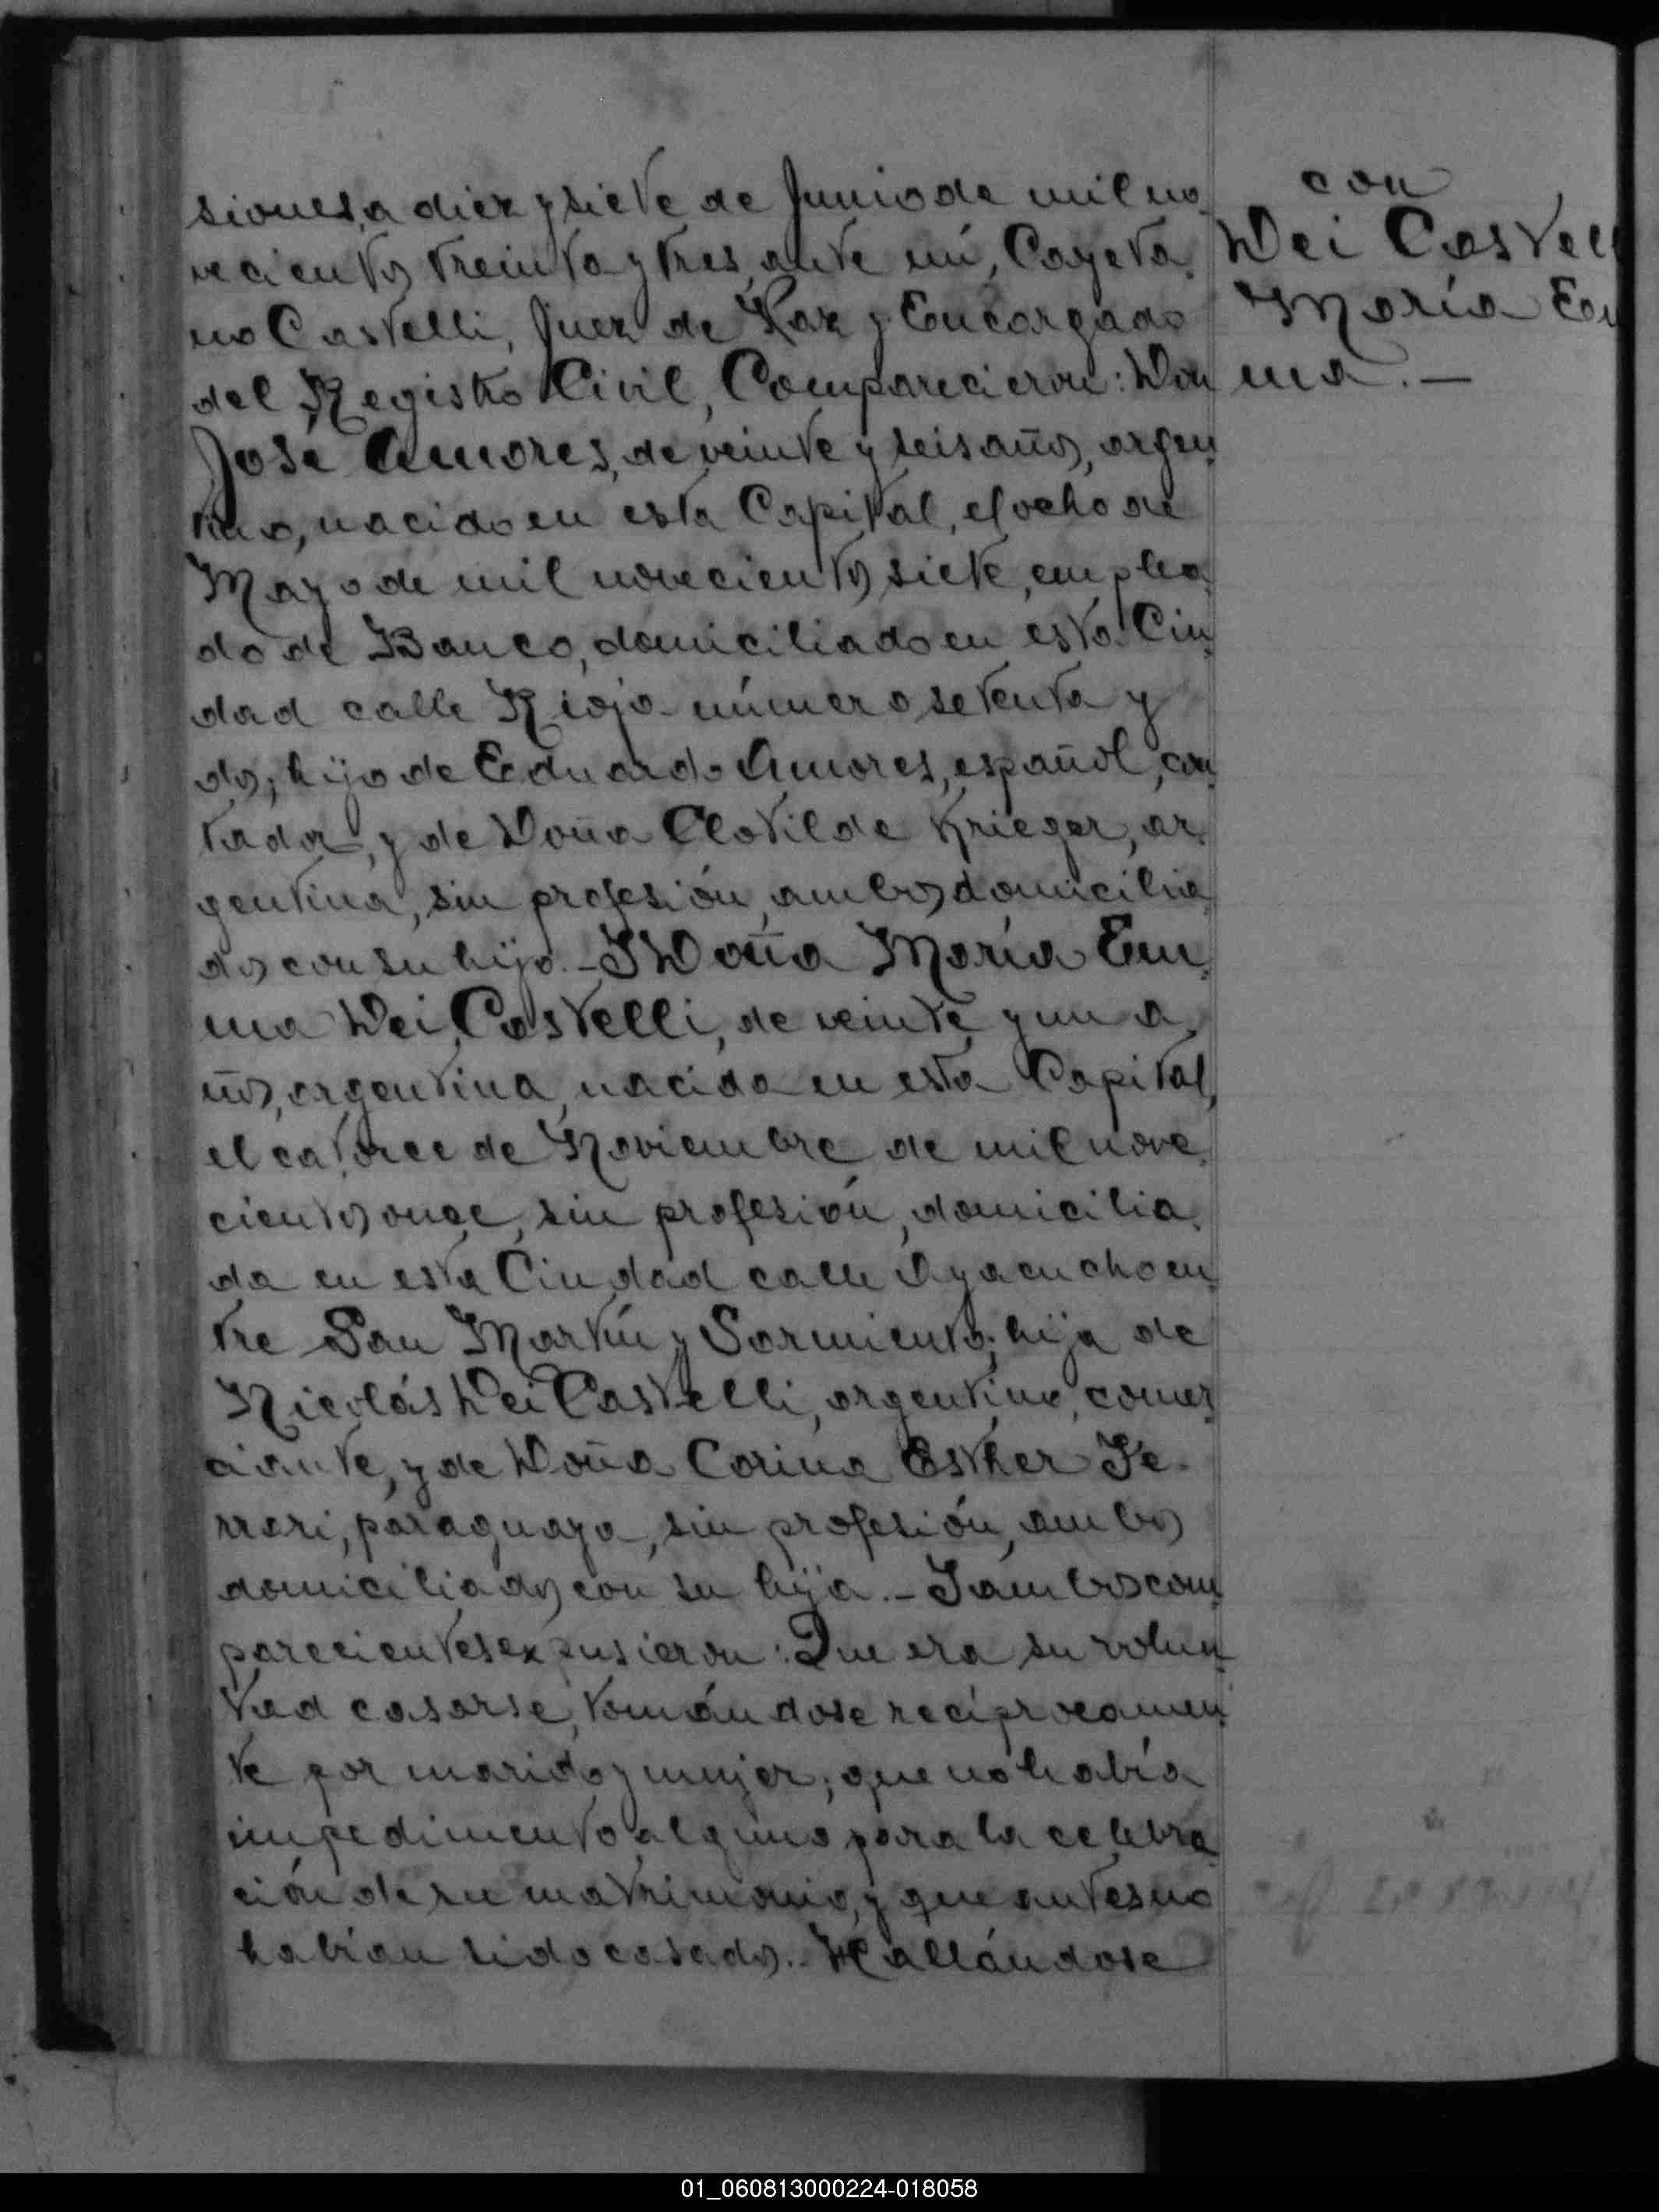 siones, a diez y siete de Junio de mil no-
vecientos treinta y tres, ante mí, Cayeta-
no Castelli, Juez de Paz y Encargado
del Registro Civil, Comparecieron: Don
José Amores, de veinte y seis años, argen-
tino, nacido en esta Capital, el ocho de
Mayo de mil novecientos siete, emplea-
do de Banco, domiciliado en esta Ciu-
dad calle Rioja número setenta y
dos; hijo de Eduardo Amores, español, con-
tador, y de Doña Clotilde Krieger, ar-
gentina, sin profesión, ambos domicilia-
dos con su hijo.- Y Doña María Em-
ma Dei Castelli, de veinte y un a-
ños, argentina, nacida en esta Capital,
el catorce de Noviembre de mil nove-
cientos once, sin profesión, domicilia-
da en esta Ciudad calle Ayacucho en-
tre San Martín y Sarmiento; hija de
Nicolás Dei Castelli, argentino, comer-
ciante, y de Doña Corina Esther Fe-
rrari, paraguaya, sin profesión, ambos
domiciliados con su hija.- Y ambos com-
parecientes expusieron: Que era su volun-
tad casarse, tomándose recíprocamen-
te por marido y mujer; que no había
impedimento alguno para la celebra-
ción de su matrimonio, y que antes no
habían sido casados.- Hallándose
con
Dei Castell
María Em
ma.—
01_060813000224-018058